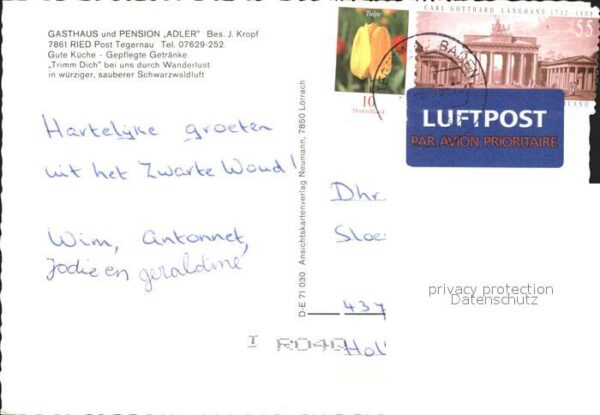 GASTHAUS und PENSION „ADLER" Bes. J. Kropf
7861 RIED Post Tegernau Tel. 07629-252
Gute Küche - Gepflegte Getränke
„Trimm Dich" bei uns durch Wanderlust
in würziger, sauberer Schwarzwaldluft
Hartelijke groeten
uit het Zwarte Woud!
Wim, Antonnet,
Jodie en geraldine
D-E 71 030 Ansichtskartenverlag Neumann, 7850 Lörrach
Tulpe
10
Deutschland
CARL GOTTHARD LANGHANS 1732-1808
55
BADEN
LUFTPOST
PAR AVION PRIORITAIRE
Dhr
Sloe
437
Hol
privacy protection
Datenschutz